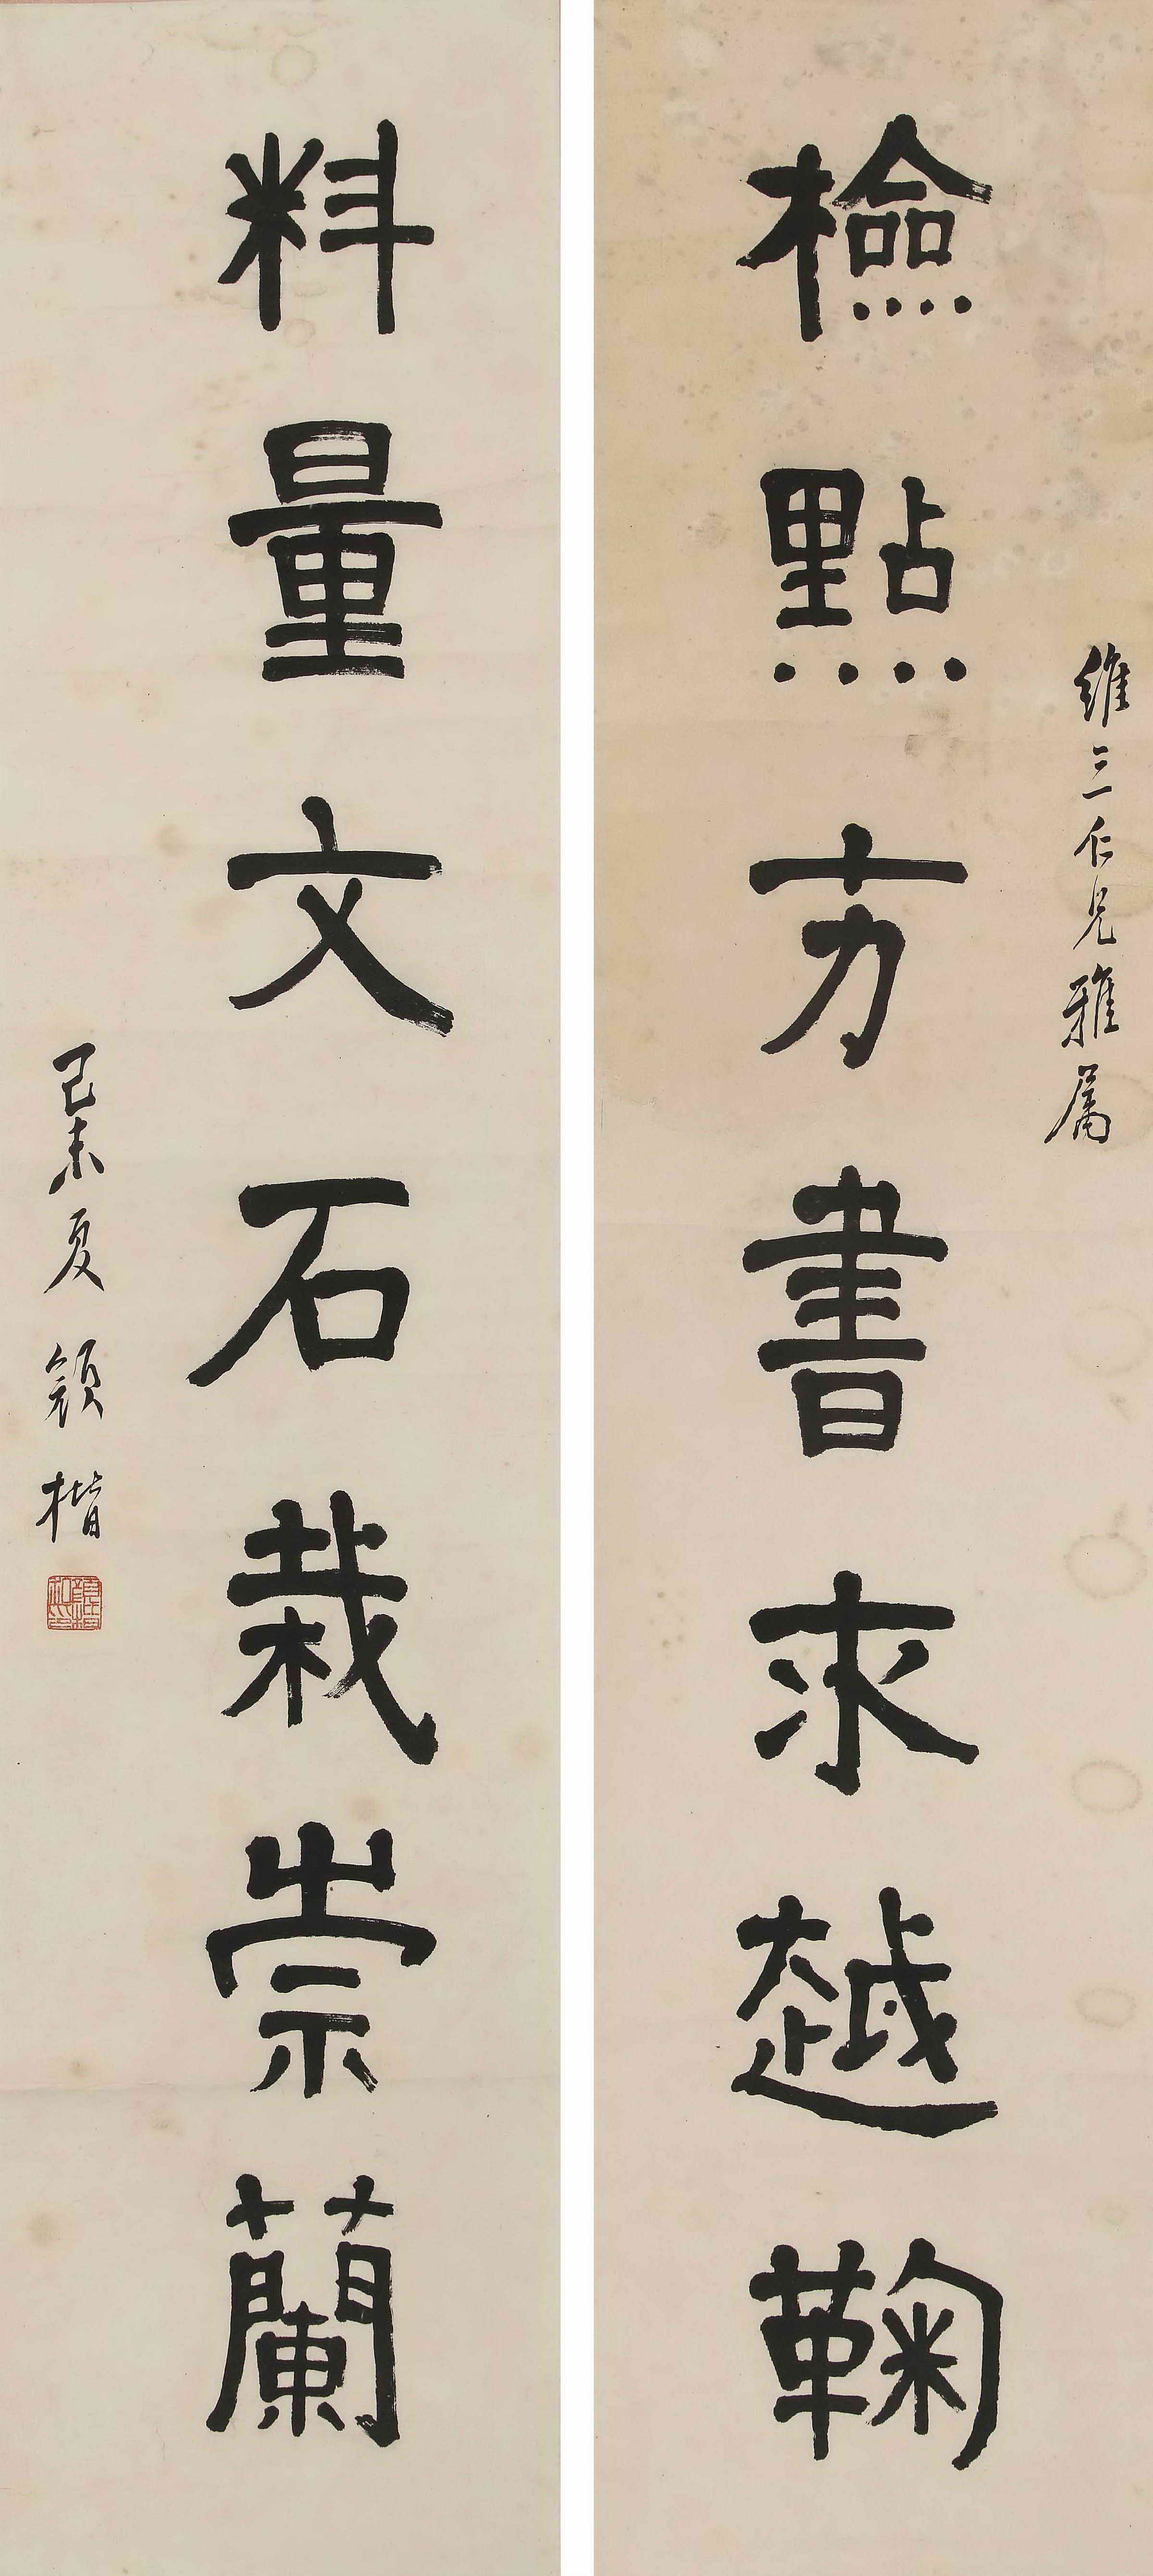 維三仁兄雅属
檢點方書求越鞠
料量文石栽崇蘭
己未夏 顧楷